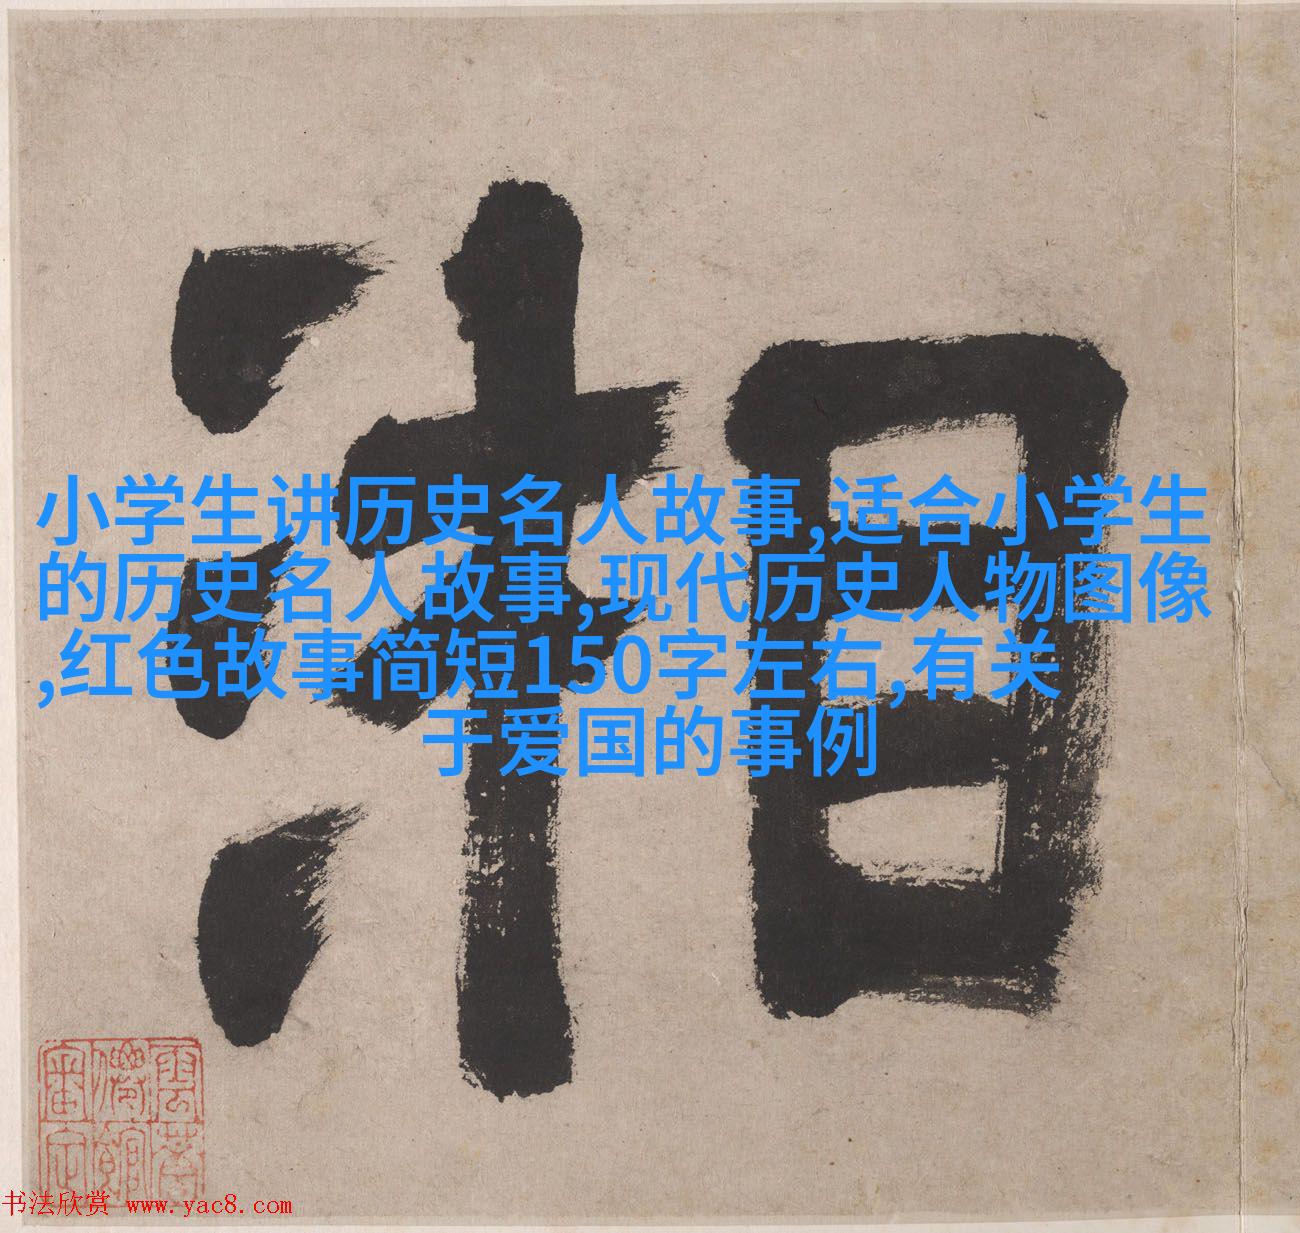 湘
小学生讲历史名人故事,适合小学生
的历史名人故事,现代历史人物图像
,红色故事简短150字左右,有关
于爱国的事例
书法欣赏 www.yac8.com